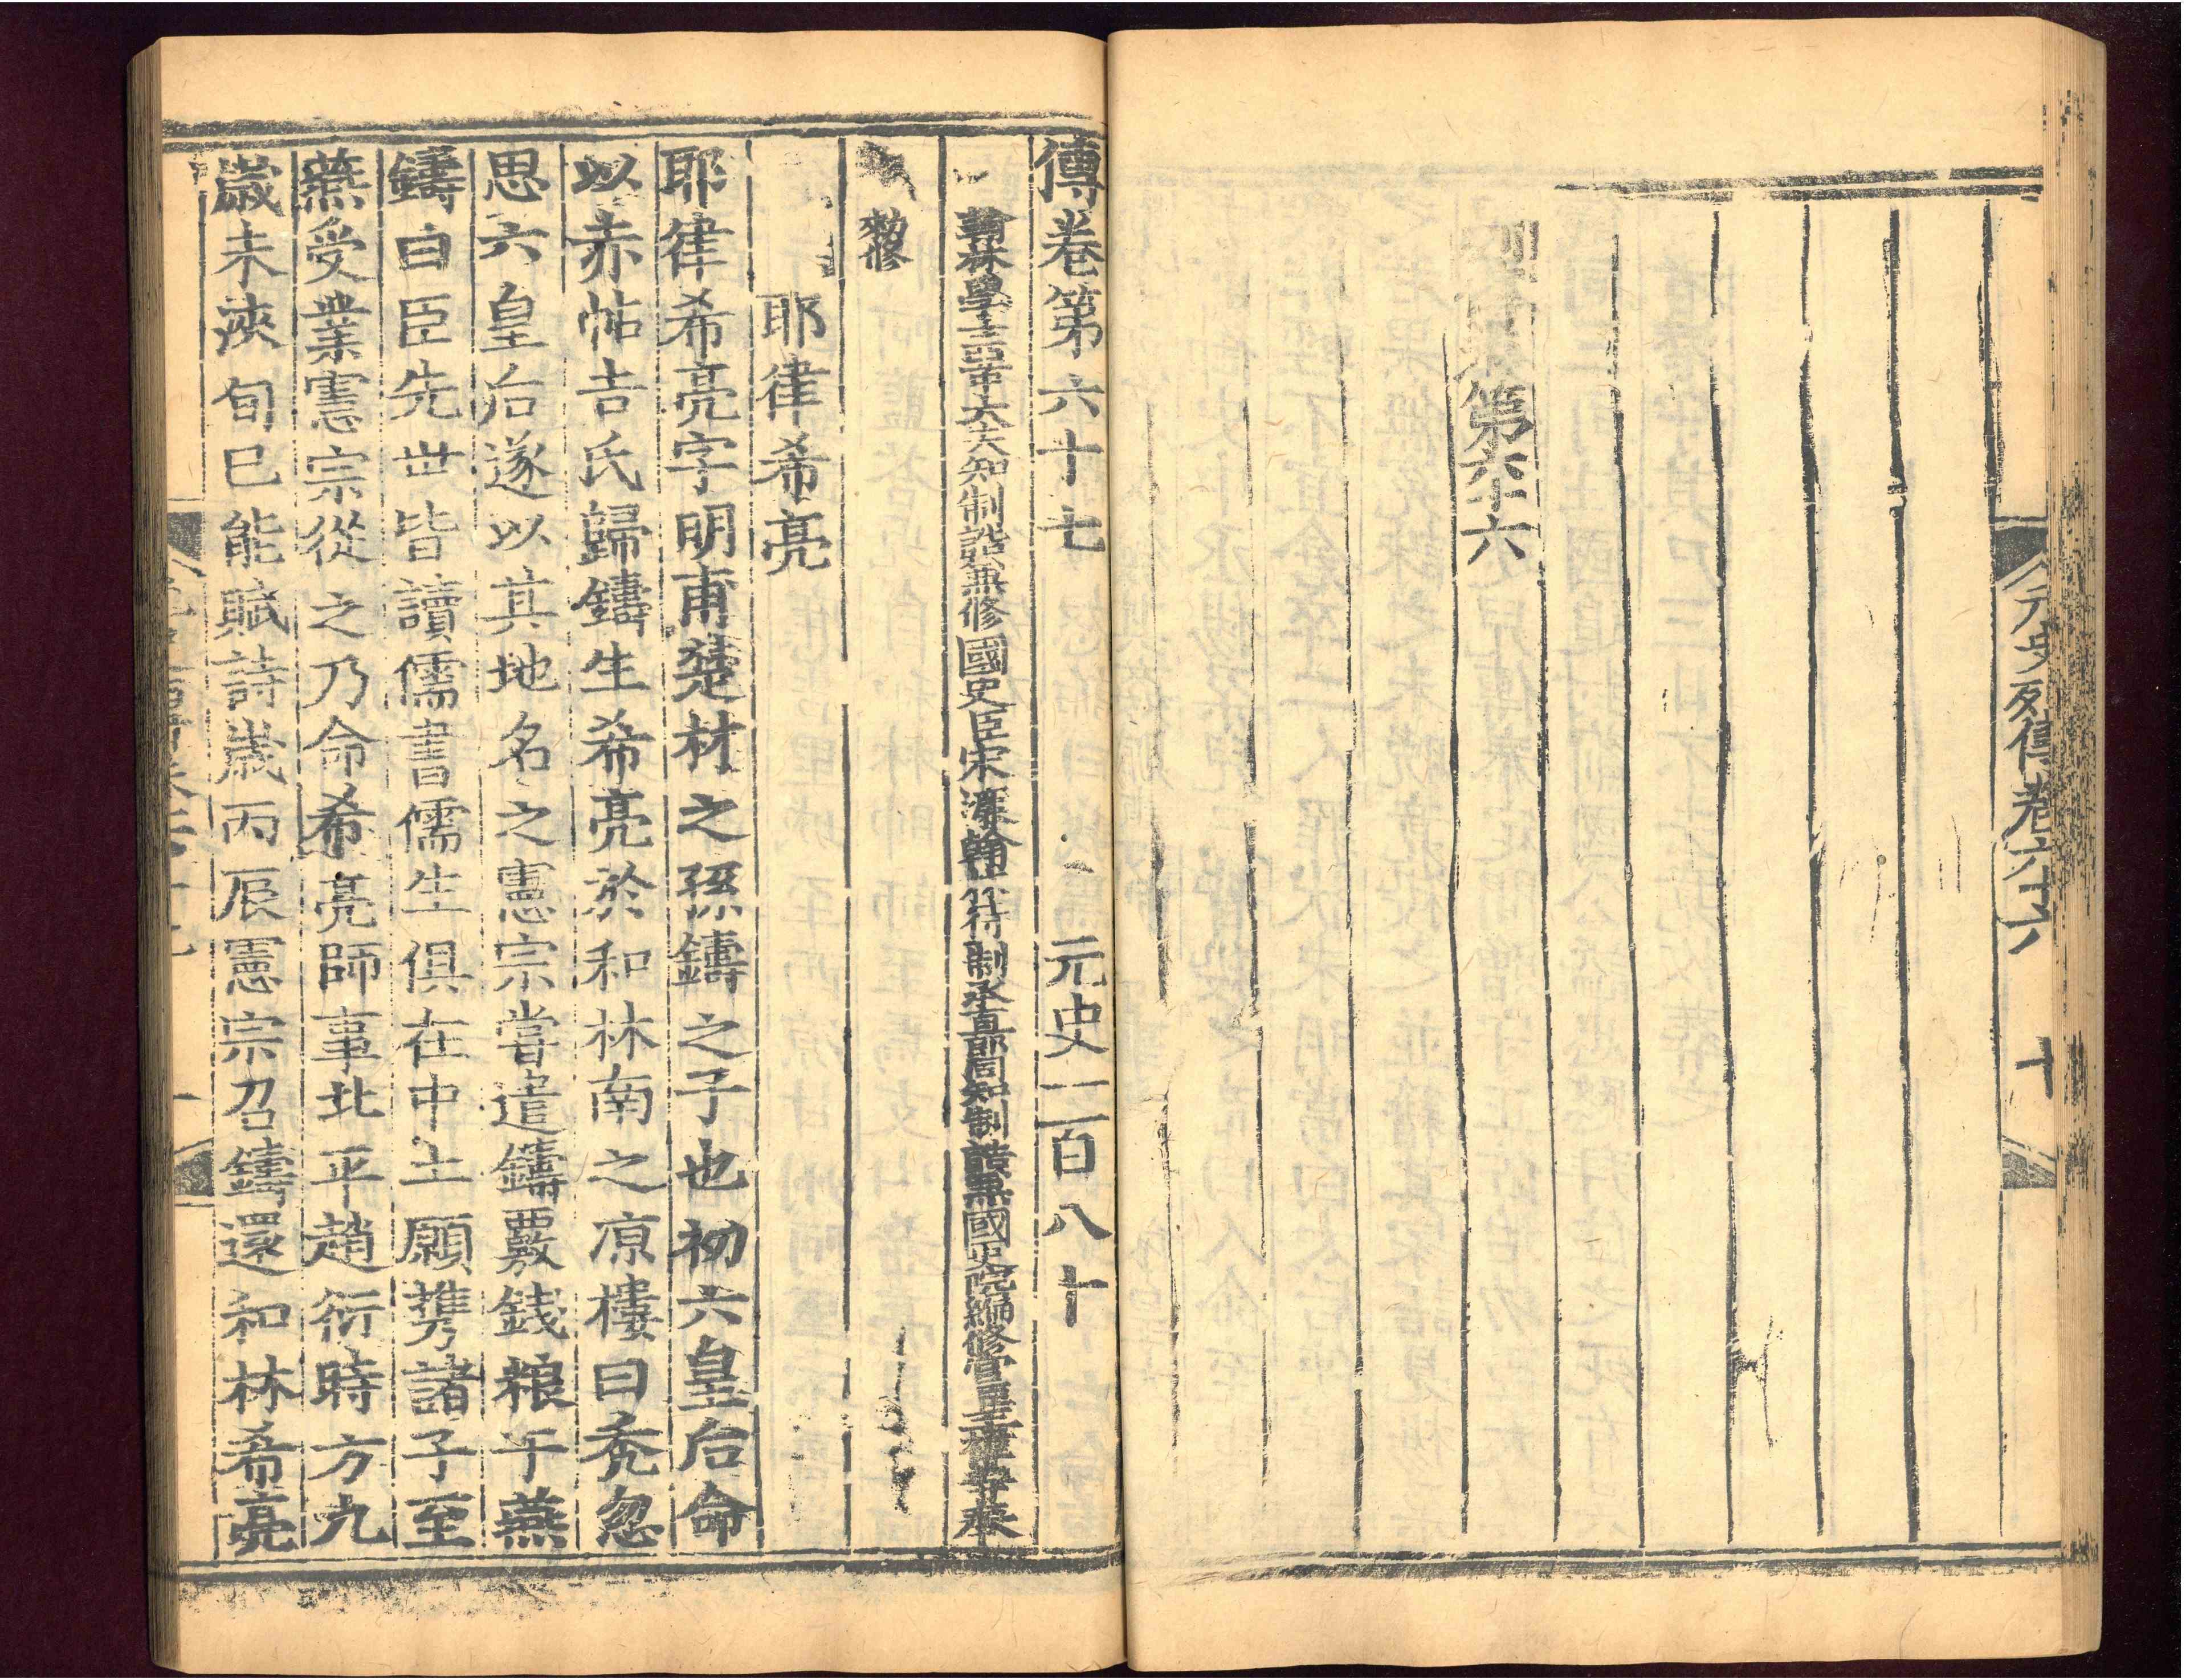 元史列傳卷六十六 十
第六十六
傳卷第六十七 元史一百八十
翰林學士亞中大夫知制誥兼修國史臣宋濂翰林待制承直郎同知制誥兼國史院編修官臣王禕等奉
勑修
耶律希亮
耶律希亮字明甫楚材之孫鑄之子也初六皇后命
以赤帖吉氏歸鑄生希亮於和林南之凉樓曰禿忽
思六皇后遂以其地名之憲宗嘗遣鑄覈錢粮于燕
鑄曰臣先世皆讀儒書儒生俱在中土願携諸子至
燕受業憲宗從之乃命希亮師事北平趙衍時方九
歲未浹旬已能賦詩歲丙辰憲宗召鑄還和林希亮